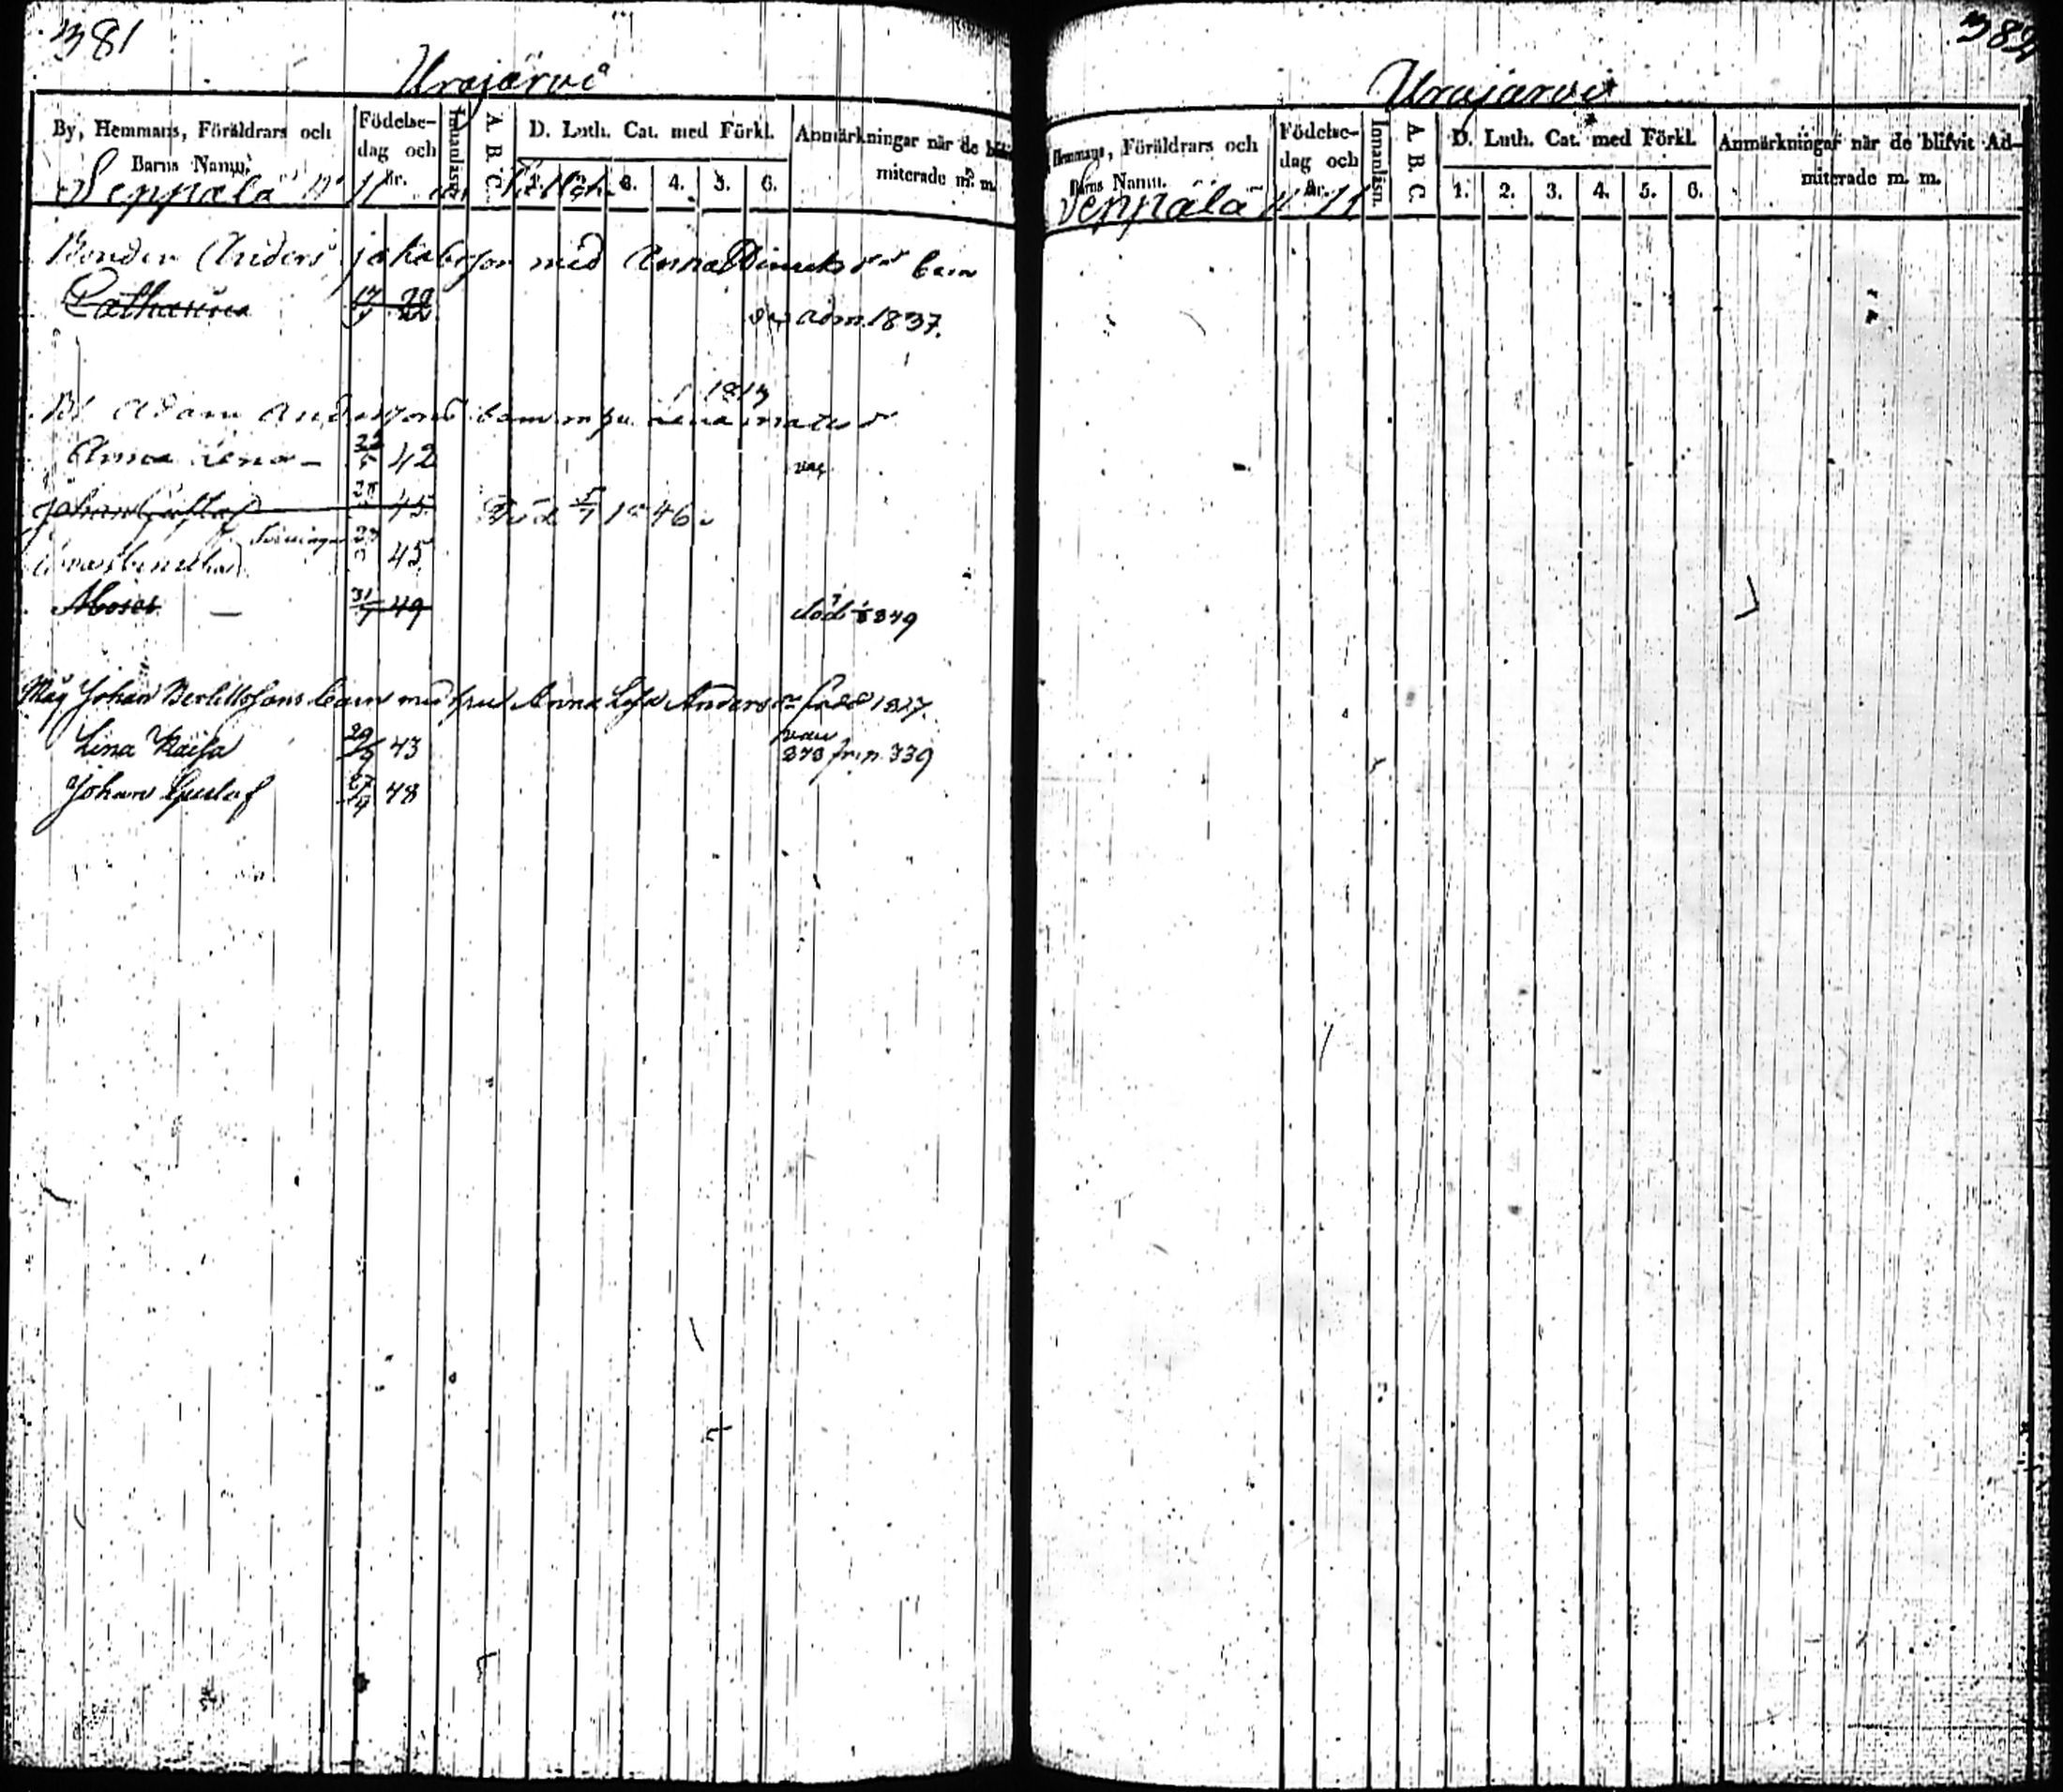 381
Urajärvi
By, Hemmans, Föräldrars och Barns Namn.
Födelse-dag och år.
Innanläsn.
A. B. C.
D. Luth. Cat. med Förkl.
1. 2. 3. 4. 5. 6.
Anmärkningar när de miterade m. m.
Seppälä N 11
Bonden Anders Jakobsson med Anna barn
Catharina 17 22 adm. 1837.
1819
Adam Anderssons barn Lena
Anna Lena - 42 vac
Johan Gustaf 45 Död 5/7 1846.
Tvillingar
45
Moses — 31/7 49 död 1849
Måg Johan Bertillssons barn med hu Anna Lisa Anders dr född 1827.
Lina Kaisa 29/9 43 vac 373 339
Johan Gustaf 27/9 48
382
Urajärvi
Hemmans, Föräldrars och Barns Namn.
Födelse-dag och år.
Innanläsn.
A. B. C.
D. Luth. Cat. med Förkl.
1. 2. 3. 4. 5. 6.
Anmärkningar när de blifvit Ad-miterade m. m.
Seppälä N 11